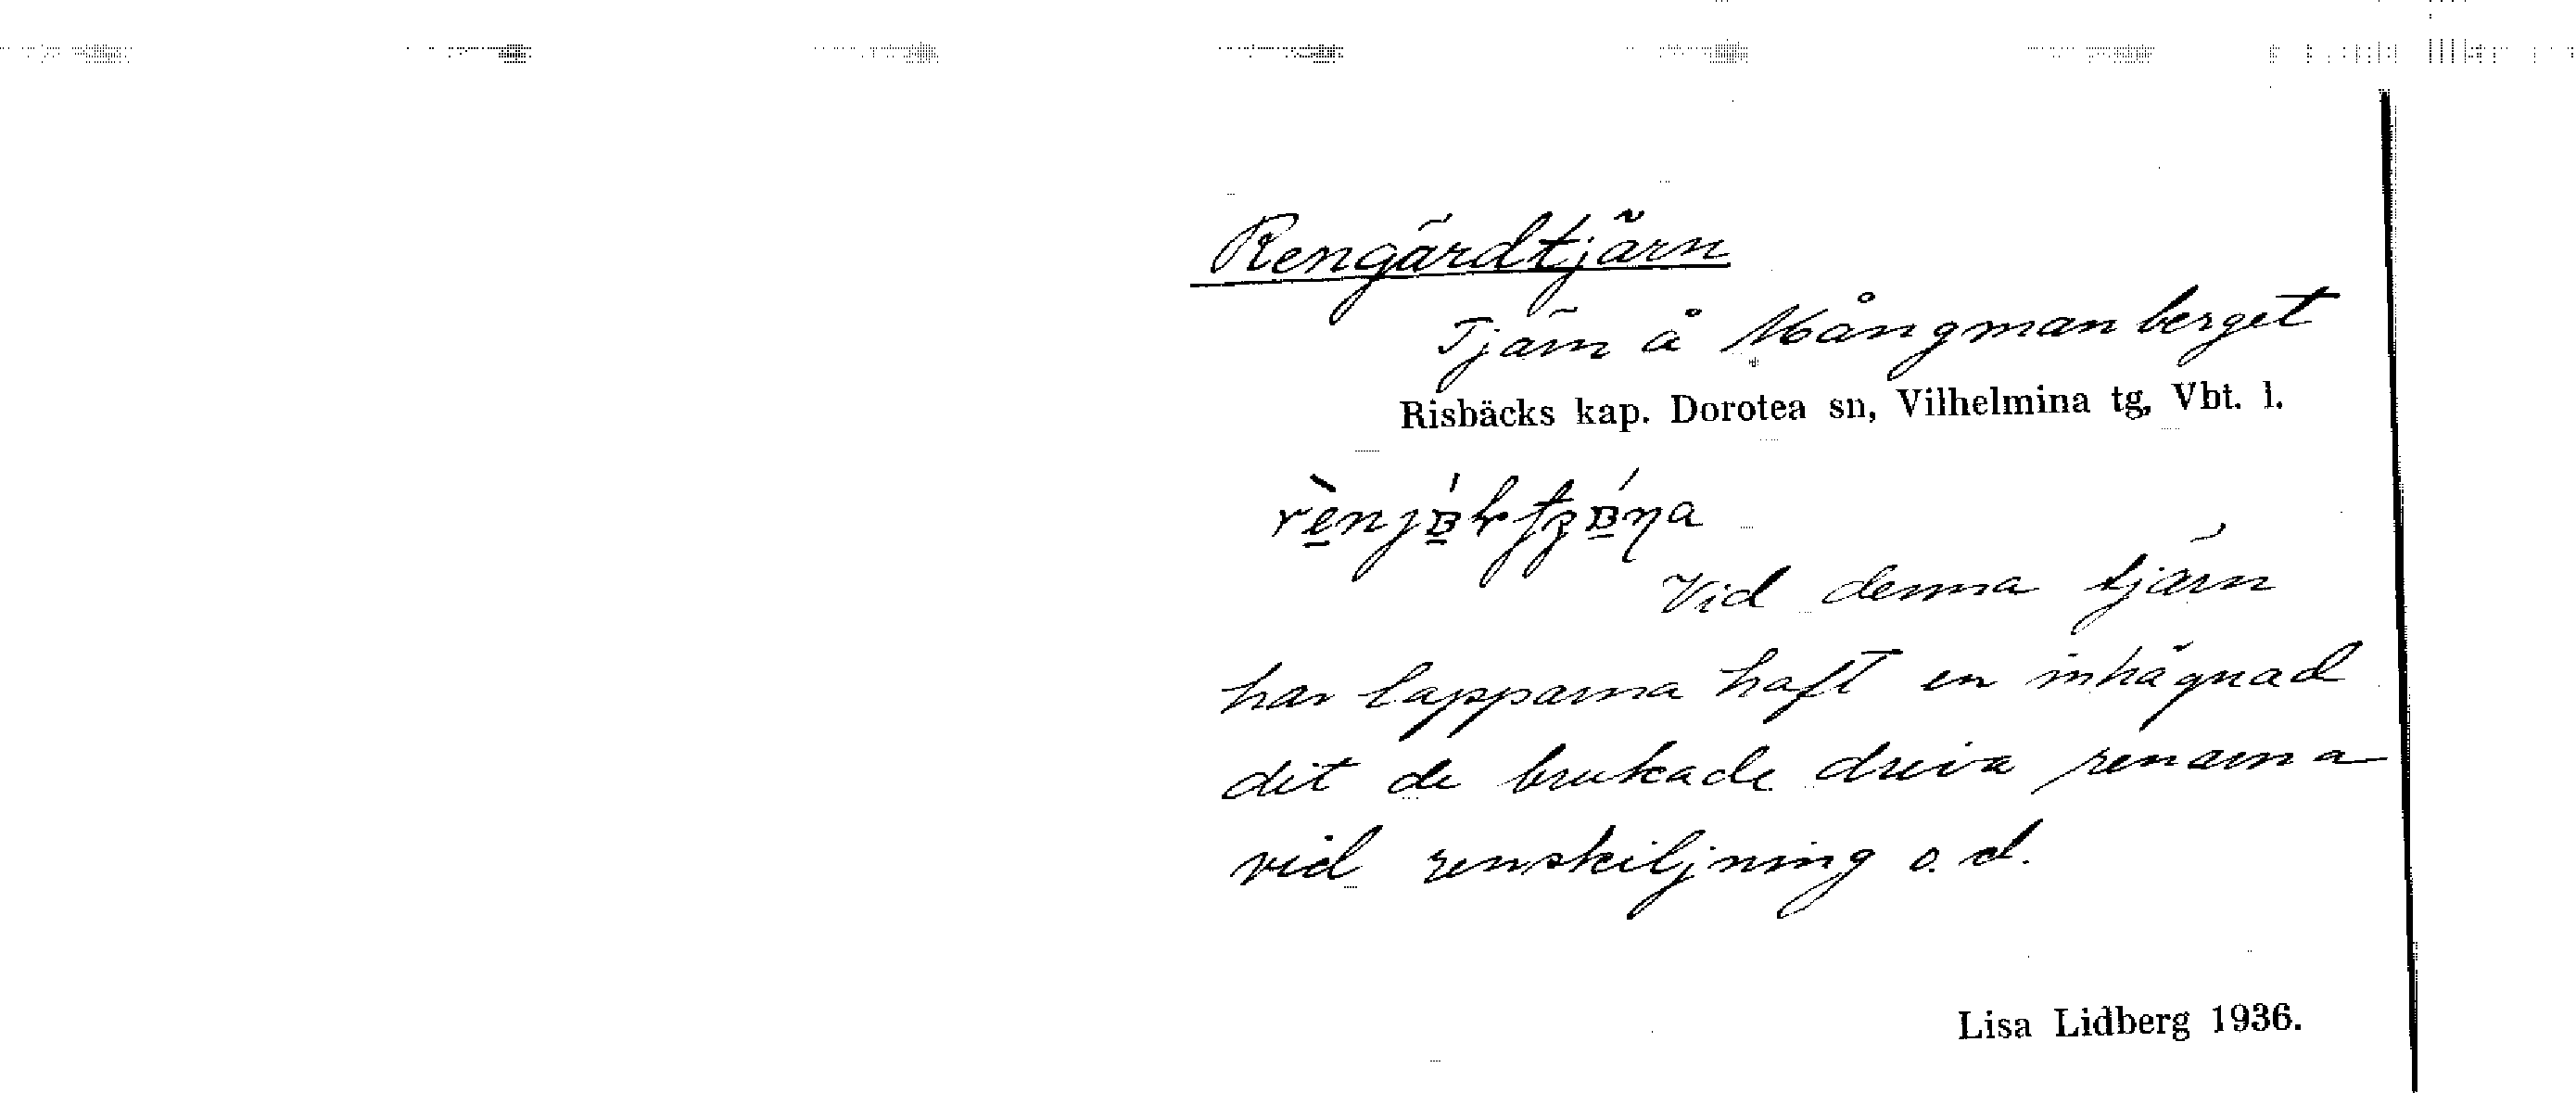 Rengärdtjärn
Tjärn å Mångmanberget
Risbäcks kap. Dorotea sn, Vilhelmina tg, Vbt. l.
Vid denna tjärn
har lapparna haft en inhägnad
dit de brukade driva renarna
vid renskiljning o. d.
Lisa Lidberg 1936.